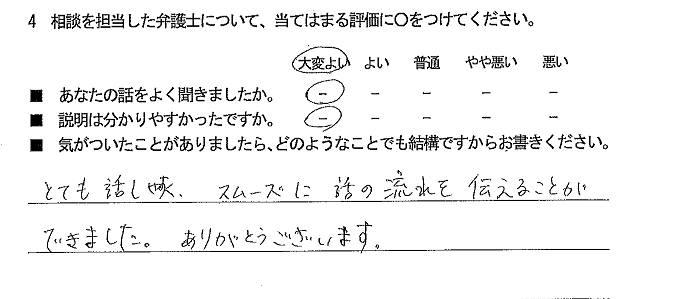 4 相談を担当した弁護士について、当てはまる評価に○をつけてください。
大変よい よい 普通 やや悪い 悪い
■ あなたの話をよく聞きましたか。 － － － － －
■ 説明は分かりやすかったですか。 － － － － －
■ 気がついたことがありましたら、どのようなことでも結構ですからお書きください。
とても 話し易く、スムーズに 話の 流れを 伝えることが
できました。 ありがとうございます。